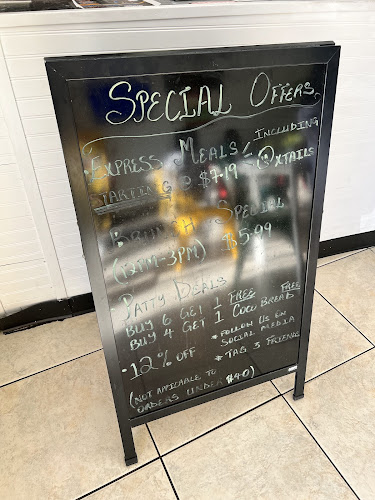 SPECIAL OFFERS
EXPRESS MEALS INCLUDING
STARTING @ $7.19 OXTAILS
BRUNCH SPECIAL
(12PM-3PM) $5.99
PATTY DEALS
BUY 6 GET 1 FREE
BUY 4 GET 1 COCO BREAD FREE
12% OFF
* FOLLOW US ON
SOCIAL MEDIA
* TAG 3 FRIENDS
(NOT APPICABLE TO
ORDERS UNDER $40)